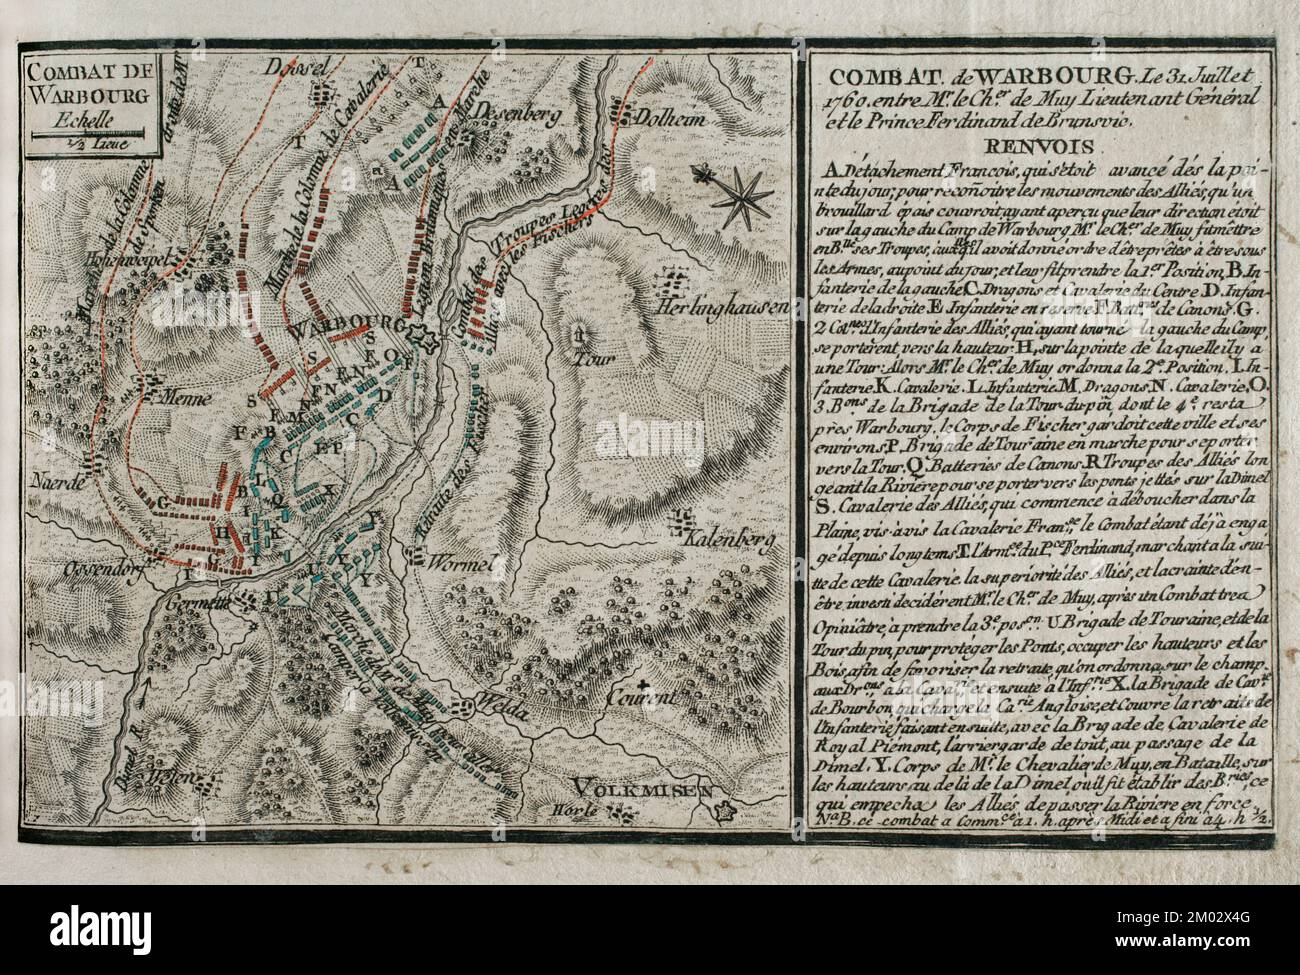 COMBAT DE
WARBOURG
Echelle
½ Lieue
Dössel
Desenberg
Dolheim
Marche de la Colonne de Cavalerie
Marche de la Colonne
de Sporken
Hohenwepel
Legion Britanique en Marche
Troupes Legeres des
Combat des
Alliés avec les Fischers
WARBOURG
Herlinghausen
Tour
Menne
Naerde
Retraite des Fischer
Ossendorf
Germette
Wormel
Kalenberg
Welda
Courent
Dimel R.
Welern
VOLKMISEN
Horle
COMBAT. de WARBOURG. Le 31 Juillet
1760. entre Mr. le Cher. de Muy Lieutenant Général
et le Prince Ferdinand de Brunsvic.
RENVOIS
A. Détachement Francois, qui s'etoit avancé dés la poi-
nte du jour, pour reconoitre les mouvements des Alliés, qu'un
brouillard épais couvroit, ayant aperçu que leur direction étoit
sur la gauche du Camp de Warbourg, Mr. le Cher. de Muy fit mettre
en Blle. ses Troupes, auxqlles. il avoit donné ordre d'etre prêtes à être sous
les Armes, au point du jour, et leur fit prendre la 1er Position, B. In-
fanterie de la gauche C. Dragons et Cavalerie du Centre D. Infan-
terie de la droite. E Infanterie en reserve F. Battres. de Canons. G.
2 Colnes. d'Infanterie des Alliés, qui ayant tourné la gauche du Camp,
se portèrent, vers la hauteur. H, sur la pointe de la quelle il y a
une Tour. Alors Mr. le Cher. de Muy ordonna la 2e. Position. I. In-
fanterie. K. Cavalerie. L. Infanterie. M. Dragons. N. Cavalerie, O.
3. Bons. de la Brigade de la Tour-du-pin, dont le 4e. resta
près Warbourg, le Corps de Fischer gardoit cette ville et ses
environs, P. Brigade de Touraine en marche pour se porter
vers la Tour. Q. Batteries de Canons. R. Troupes des Alliés lon
geant la Rivière pour se porter vers les ponts jettés sur la Dimel
S. Cavalerie des Alliés, qui commence à déboucher dans la
Plaine, vis-à-vis la Cavalerie Franse. le Combat étant déja enga
gé depuis longtems. T. l'Armée. du Pce. Ferdinand, marchant a la sui-
te de cette Cavalerie. la superiorité des Alliés, et la crainte d'en-
être investi decidérent Mr. le Cher. de Muy, après un Combat tres
Opiniâtre, à prendre la 3e. poson. U. Brigade de Touraine, et de la
Tour du pin, pour protéger les Ponts, occuper les hauteurs et les
Bois, afin de favoriser la retraite, qu'on ordonna, sur le champ,
aux Drons. à la Cavrie. et ensuite à l'Infrie. X. la Brigade de Cavre.
de Bourbon, qui charge la Carie. Angloise, et Couvre la retraite de
l'Infanterie, faisant ensuite, avec la Brigade de Cavalerie de
Royal Piémont, l'arriergarde de tout, au passage de la
Dimel. Y. Corps de Mr. le Chevalier de Muy, en Bataille, sur
les hauteurs au de là de la Dimel, où il fit établir des Bries., ce
qui empecha les Alliés de passer la Rivière en force.
Na B. ce combat a Commcé. à 1. h. après Midi et a fini a 4. h ½.
alamy
Image ID: 2M02X4G
www.alamy.com